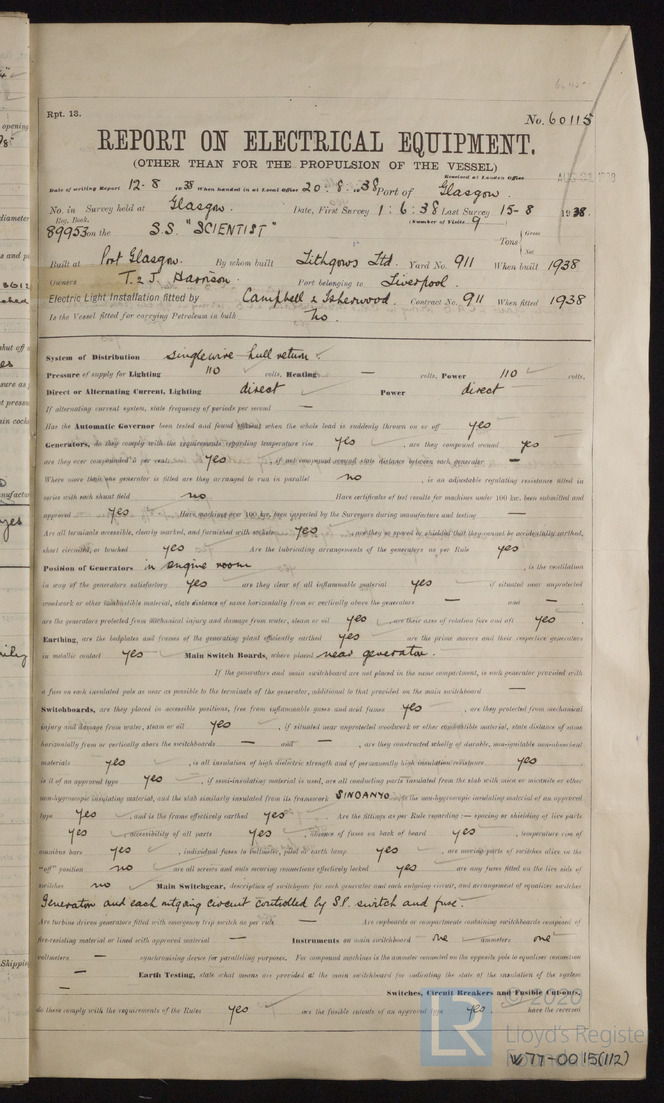 Rpt. 13.
No. 60115
REPORT ON ELECTRICAL EQUIPMENT.
(OTHER THAN FOR THE PROPULSION OF THE VESSEL)
Received at London Office
Date of writing Report 12-8 1938 When handed in at Local Office 20.8.38 Port of Glasgow.
No. in Survey held at Glasgow. Date, First Survey 1:6:38 Last Survey 15-8 1938.
Reg. Book. (Number of Visits 9
89953 on the S.S. "SCIENTIST" Tons Gross Net
Built at Port Glasgow. By whom built Lithgows Ltd. Yard No. 911 When built 1938
Owners T. & J. Harrison. Port belonging to Liverpool.
Electric Light Installation fitted by Campbell & Isherwood. Contract No. 911 When fitted 1938
Is the Vessel fitted for carrying Petroleum in bulk No.
System of Distribution single wire hull return
Pressure of supply for Lighting 110 volts, Heating — volts, Power 110 volts.
Direct or Alternating Current, Lighting direct Power direct
If alternating current system, state frequency of periods per second —
Has the Automatic Governor been tested and found efficient when the whole load is suddenly thrown on or off yes
Generators, do they comply with the requirements regarding temperature rise yes, are they compound wound yes
are they over compounded 5 per cent. yes, if not compound wound state distance between each generator —
Where more than one generator is fitted are they arranged to run in parallel no, is an adjustable regulating resistance fitted in
series with each shunt field no Have certificates of test results for machines under 100 kw. been submitted and
approved yes Have machines over 100 kw. been inspected by the Surveyors during manufacture and testing —
Are all terminals accessible, clearly marked, and furnished with sockets yes, are they so spaced or shielded that they cannot be accidentally earthed,
short circuited, or touched yes Are the lubricating arrangements of the generators as per Rule yes
Position of Generators in engine room, is the ventilation
in way of the generators satisfactory yes are they clear of all inflammable material yes if situated near unprotected
woodwork or other combustible material, state distance of same horizontally from or vertically above the generators — and —,
are the generators protected from mechanical injury and damage from water, steam or oil yes, are their axes of rotation fore and aft yes.
Earthing, are the bedplates and frames of the generating plant efficiently earthed yes are the prime movers and their respective generators
in metallic contact yes Main Switch Boards, where placed near generator.
If the generators and main switchboard are not placed in the same compartment, is each generator provided with
a fuse on each insulated pole as near as possible to the terminals of the generator, additional to that provided on the main switchboard —
Switchboards, are they placed in accessible positions, free from inflammable gases and acid fumes yes, are they protected from mechanical
injury and damage from water, steam or oil yes, if situated near unprotected woodwork or other combustible material, state distance of same
horizontally from or vertically above the switchboards — and —, are they constructed wholly of durable, non-ignitable non-absorbent
materials yes, is all insulation of high dielectric strength and of permanently high insulation resistance yes,
is it of an approved type yes, if semi-insulating material is used, are all conducting parts insulated from the slab with mica or micanite or other
non-hygroscopic insulating material, and the slab similarly insulated from its framework SINDANYO is the non-hygroscopic insulating material of an approved
type yes, and is the frame effectively earthed yes. Are the fittings as per Rule regarding:— spacing or shielding of live parts
yes, accessibility of all parts yes, absence of fuses on back of board yes, temperature rise of
omnibus bars yes, individual fuses to voltmeter, pilot or earth lamp yes, are moving parts of switches alive in the
"off" position no are all screws and nuts securing connections effectively locked yes are any fuses fitted on the live side of
switches no Main Switchgear, description of switchgear for each generator and each outgoing circuit, and arrangement of equalizer switches
Generator and each outgoing circuit controlled by S.P. switch and fuse.
Are turbine driven generators fitted with emergency trip switch as per rule — Are cupboards or compartments containing switchboards composed of
fire-resisting material or lined with approved material — Instruments on main switchboard one ammeters one
voltmeters — synchronising device for paralleling purposes. For compound machines is the ammeter connected on the opposite pole to equaliser connection
— Earth Testing, state what means are provided at the main switchboard for indicating the state of the insulation of the system
—
Switches, Circuit Breakers and Fusible Cut-outs,
do these comply with the requirements of the Rules yes are the fusible cutouts of an approved type yes. have the reversed
© 2020
LR
Lloyd's Register
Foundation
W77-0015(1/2)